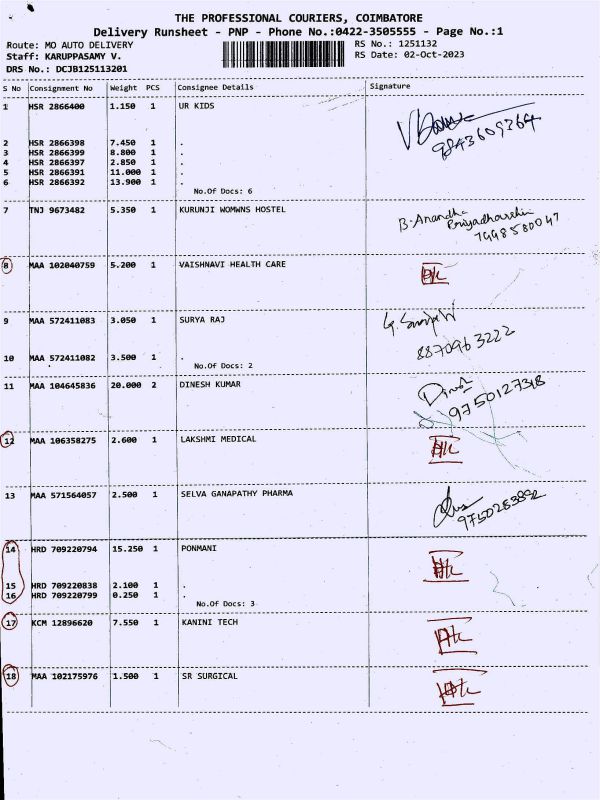 THE PROFESSIONAL COURIERS, COIMBATORE
Delivery Runsheet - PNP - Phone No.:0422-3505555 - Page No.:1
Route: MO AUTO DELIVERY RS No.: 1251132
Staff: KARUPPASAMY V. RS Date: 02-Oct-2023
DRS No.: DCJB125113201
S No Consignment No Weight PCS Consignee Details Signature
1 HSR 2866400 1.150 1 UR KIDS
9843609364
2 HSR 2866398 7.450 1 .
3 HSR 2866399 8.800 1 .
4 HSR 2866397 2.850 1 .
5 HSR 2866391 11.000 1 .
6 HSR 2866392 13.900 1 .
No.Of Docs: 6
7 TNJ 9673482 5.350 1 KURUNJI WOMWNS HOSTEL
B. Anandha
Priyadharshin
8 MAA 102040759 5.200 1 VAISHNAVI HEALTH CARE
9 MAA 572411083 3.050 1 SURYA RAJ
8870963222
10 MAA 572411082 3.500 1 .
No.Of Docs: 2
11 MAA 104645836 20.000 2 DINESH KUMAR
9750127318
12 MAA 106358275 2.600 1 LAKSHMI MEDICAL
13 MAA 571564057 2.500 1 SELVA GANAPATHY PHARMA
14 HRD 709220794 15.250 1 PONMANI
15 HRD 709220838 2.100 1 .
16 HRD 709220799 0.250 1 .
No.Of Docs: 3
17 KCM 12896620 7.550 1 KANINI TECH
18 MAA 102175976 1.500 1 SR SURGICAL